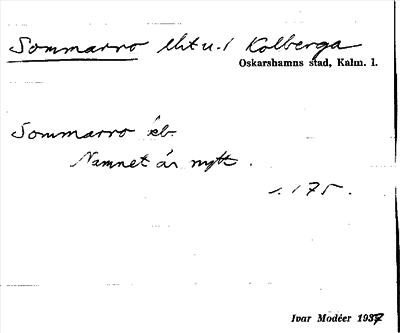 Sommarro lht u. / Kolberga
Oskarshamns stad, Kalm. l.
Sommarro ib.
Namnet är nytt.
s. 175.
Ivar Modéer 1937